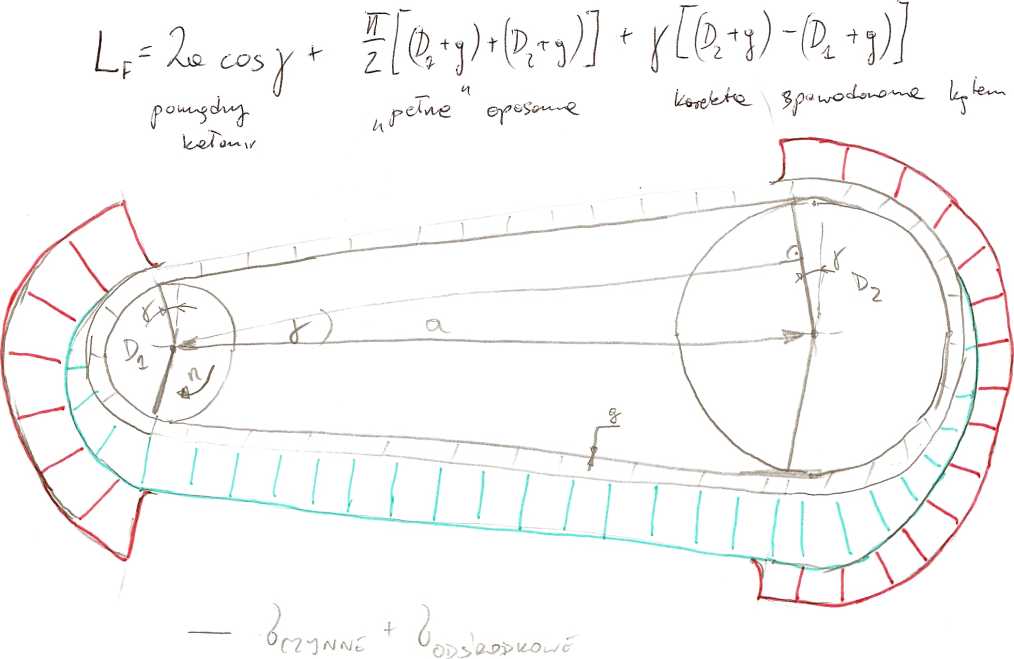 L_F = 2a cos γ + π/2 [(D_2+g)+(D_2+g)] + γ [(D_2+g)-(D_1+g)]
pomiędzy kołami „pełne" opasanie korekta spowodowana kątem
γ
D_2
γ
a
γ
D_1
n
g
— σ_CZYNNE + σ_ODŚRODKOWE